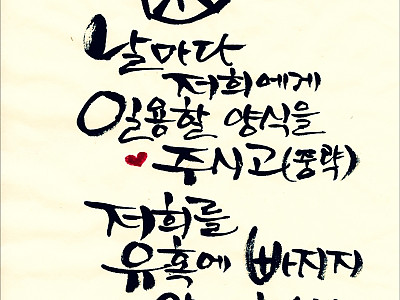 날마다
저희에게
일용할 양식을
주시고(중략)
저희를
유혹에 빠지지